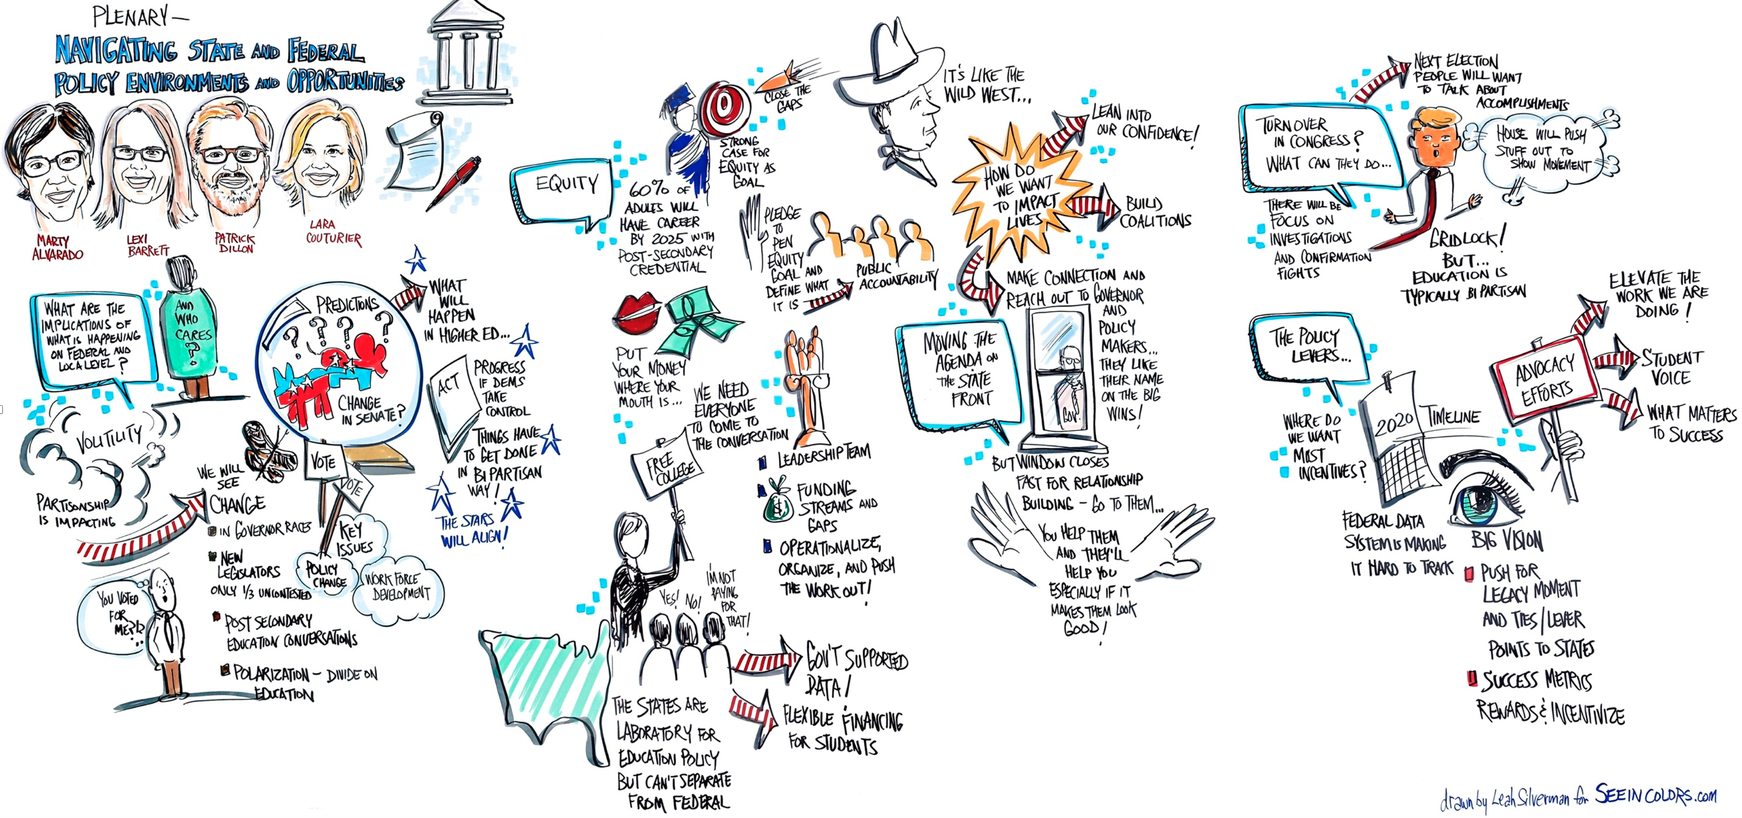 PLENARY—
NAVIGATING STATE AND FEDERAL
POLICY ENVIRONMENTS AND OPPORTUNITIES
MARTY
ALVARADO
LEXI
BARRETT
PATRICK
DILLON
LARA
COUTURIER
WHAT ARE THE
IMPLICATIONS OF
WHAT IS HAPPENING
ON FEDERAL AND
LOCAL LEVEL?
AND
WHO
CARES
?
VOLITILITY
PARTISONSHIP
IS IMPACTING
YOU VOTED
FOR
ME?!?
...
PREDICTIONS
? ? ? ?
CHANGE
IN SENATE?
WHAT
WILL
HAPPEN
IN HIGHER ED...
ACT
PROGRESS
IF DEMS
TAKE
CONTROL
THINGS HAVE
TO GET DONE
IN BIPARTISAN
WAY!
THE STARS
WILL ALIGN!
VOTE
VOTE
WE WILL
SEE
CHANGE
IN GOVERNOR RACES
NEW
LEGISLATORS
ONLY 1/3 UNCONTESTED
POST SECONDARY
EDUCATION CONVERSATIONS
POLARIZATION — DIVIDE ON
EDUCATION
KEY
ISSUES
POLICY
CHANGE
WORK FORCE
DEVELOPMENT
EQUITY
60% OF
ADULTS WILL
HAVE CAREER
BY 2025 WITH
POST-SECONDARY
CREDENTIAL
CLOSE THE
GAPS
STRONG
CASE FOR
EQUITY AS
GOAL
PLEDGE
TO
PEN
EQUITY
GOAL AND
DEFINE WHAT
IT IS
PUBLIC
ACCOUNTABILITY
PUT
YOUR MONEY
WHERE YOUR
MOUTH IS...
WE NEED
EVERYONE
TO COME TO
THE CONVERSATION
LEADERSHIP TEAM
$
FUNDING
STREAMS AND
GAPS
OPERATIONALIZE,
ORGANIZE, AND PUSH
THE WORK OUT!
FREE
COLLEGE
YES!
NO!
I'M NOT
PAYING
FOR
THAT!
THE STATES ARE
LABORATORY FOR
EDUCATION POLICY
BUT CAN'T SEPARATE
FROM FEDERAL
GOV'T SUPPORTED
DATA!
FLEXIBLE FINANCING
FOR STUDENTS
IT'S LIKE THE
WILD WEST...
HOW DO
WE WANT
TO IMPACT
LIVES
LEAN INTO
OUR CONFIDENCE!
BUILD
COALITIONS
MAKE CONNECTION AND
REACH OUT TO GOVERNOR
AND
POLICY
MAKERS...
THEY LIKE
THEIR NAME
ON THE BIG
WINS!
MOVING THE
AGENDA ON
THE STATE
FRONT
GOV
BUT WINDOW CLOSES
FAST FOR RELATIONSHIP
BUILDING — GO TO THEM...
YOU HELP THEM
AND THEY'LL
HELP YOU
ESPECIALLY IF IT
MAKES THEM LOOK
GOOD!
TURN OVER
IN CONGRESS?
WHAT CAN THEY DO...
NEXT ELECTION
PEOPLE WILL WANT
TO TALK ABOUT
ACCOMPLISHMENTS
HOUSE WILL PUSH
STUFF OUT TO
SHOW MOVEMENT
THERE WILL BE
FOCUS ON
INVESTIGATIONS
AND CONFIRMATION
FIGHTS
GRIDLOCK!
BUT...
EDUCATION IS
TYPICALLY BIPARTISAN
THE POLICY
LEVERS...
WHERE DO
WE WANT
MOST
INCENTIVES?
2020
TIMELINE
FEDERAL DATA
SYSTEM IS MAKING
IT HARD TO TRACK
ADVOCACY
EFFORTS
ELEVATE THE
WORK WE ARE
DOING!
STUDENT
VOICE
WHAT MATTERS
TO SUCCESS
BIG VISION
PUSH FOR
LEGACY MOMENT
AND TIES/LEVER
POINTS TO STATES
SUCCESS METRICS
REWARDS & INCENTIVIZE
drawn by Leah Silverman for SEEINCOLORS.com